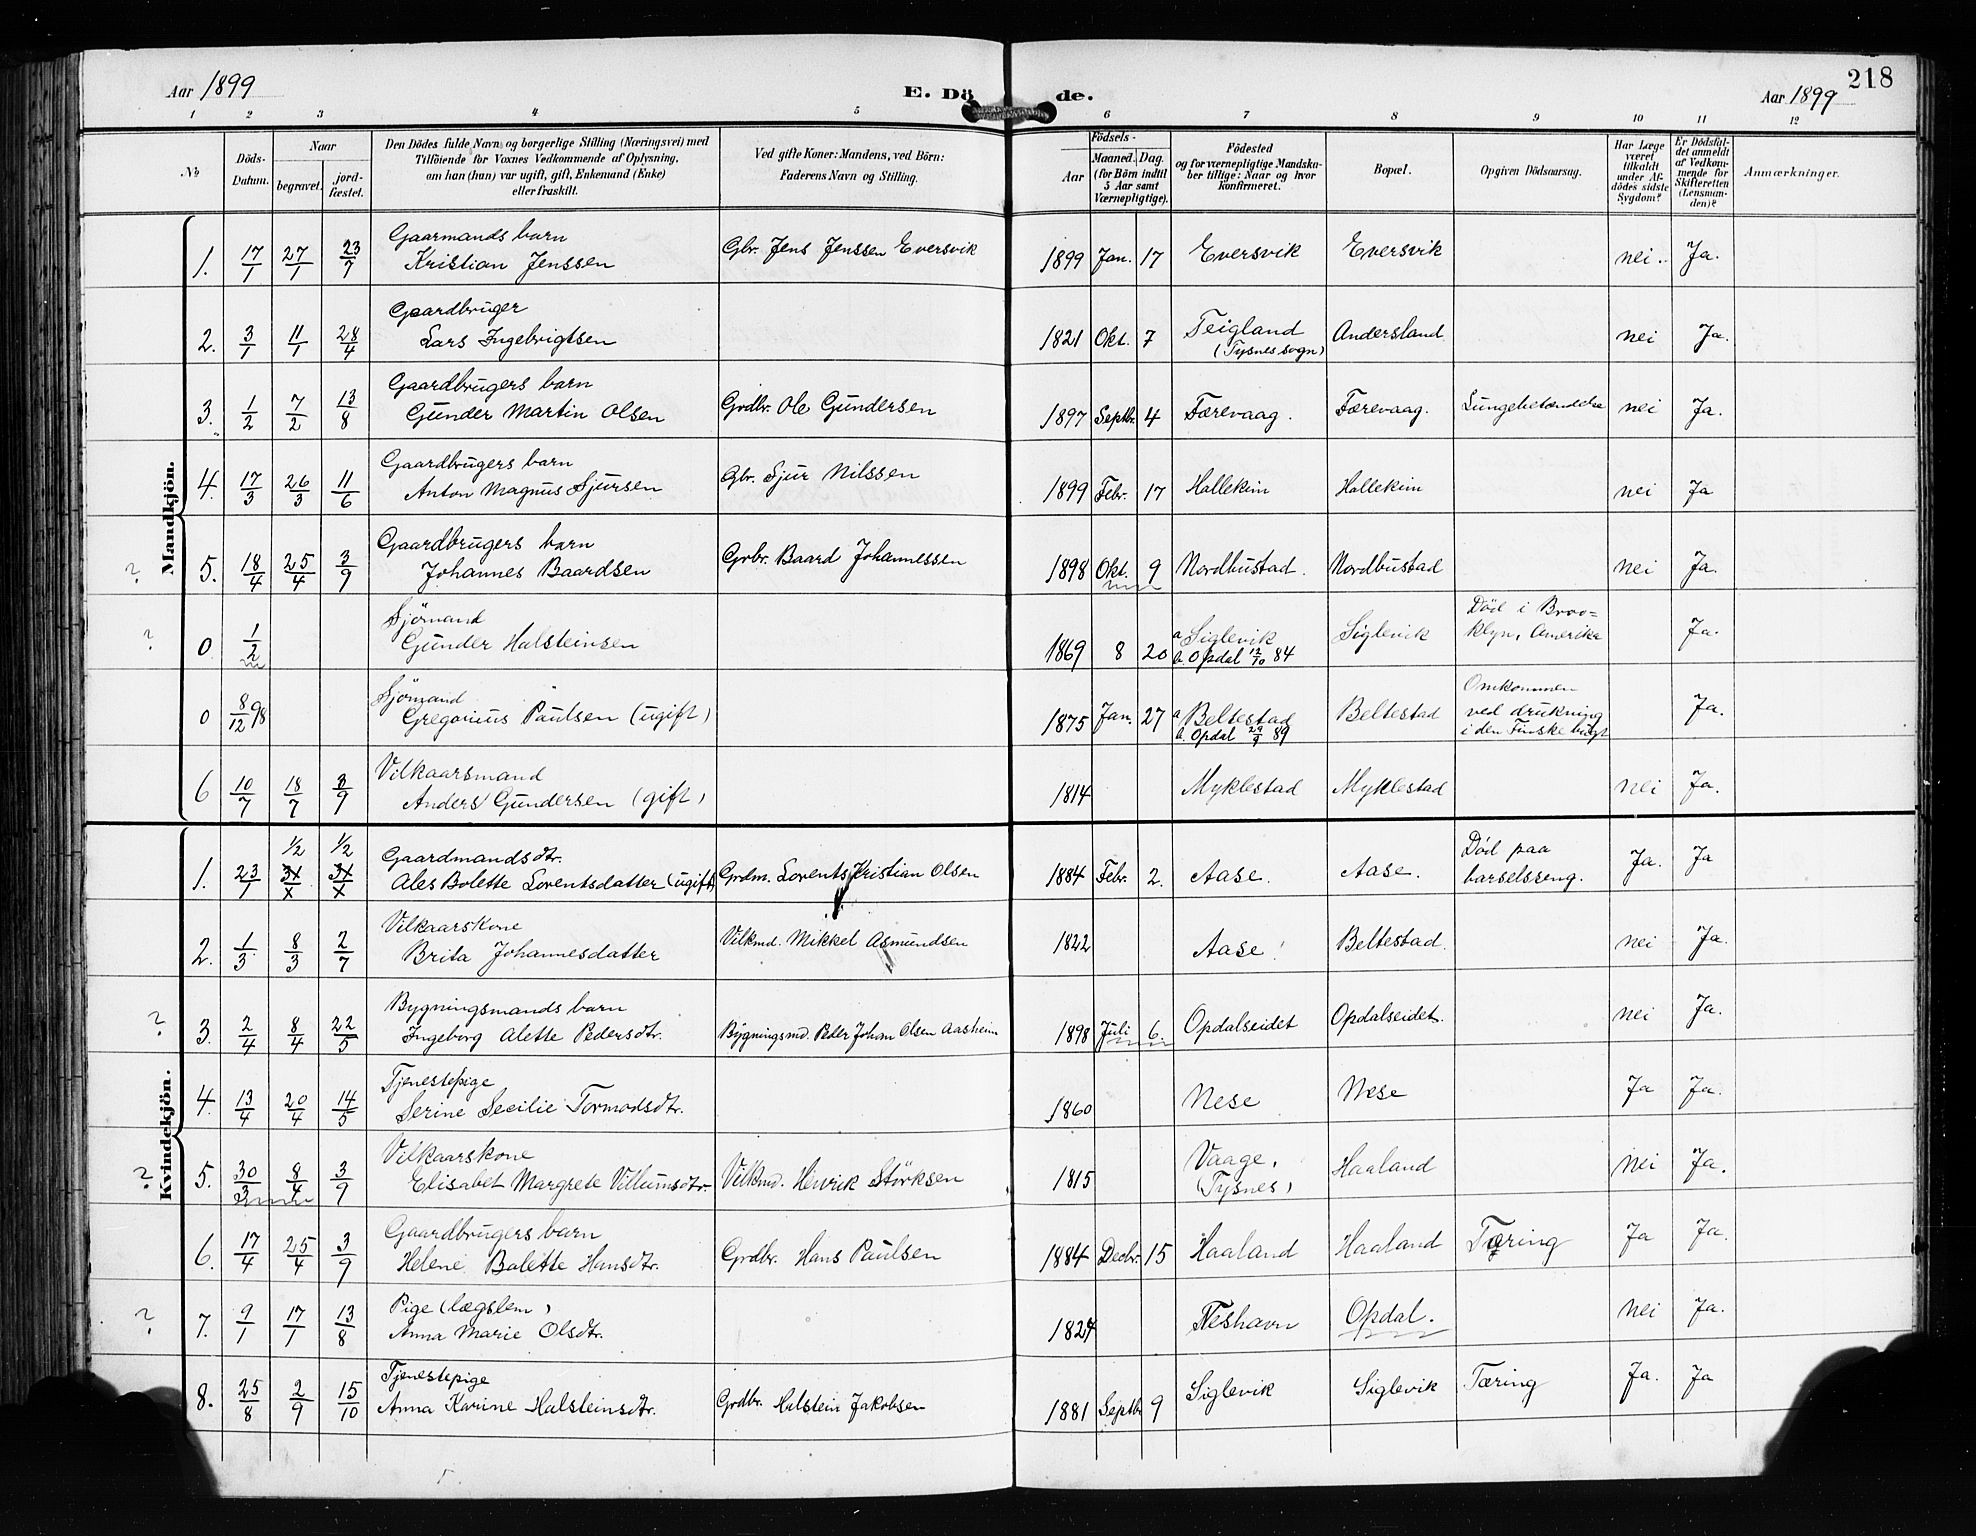 Aar 1899
E. Dö de.
218
Aar 1899
1 2 3 4 5 6 7 8 9 10 11 12
№
Döds-
Datum.
Naar
begravet.
jord-
fæstet.
Den Dödes fulde Navn og borgerlige Stilling (Næringsvei) med
Tilföiende for Voxnes Vedkommende af Oplysning,
om han (hun) var ugift, gift, Enkemand (Enke)
eller fraskilt.
Ved gifte Koner: Mandens, ved Börn:
Faderens Navn og Stilling.
Födsels-
Aar
Maaned. Dag.
(for Börn indtil
5 Aar samt
Værnepligtige).
Födested
og for værnepligtige Mandska-
ber tillige: Naar og hvor
konfirmeret.
Bopæl.
Opgiven Dödsaarsag.
Har Læge
været
tilkaldt
under Af-
dödes sidste
Sygdom?
Er Dödsfal-
det anmeldt
af Vedkom-
mende for
Skifteretten
(Lensman-
den)?
Anmærkninger.
Mandkjön.
1. 17/1 27/1 23/7
Gaarmands barn
Kristian Jenssen
Gbr. Jens Jenssen Eversvik
1899 Jan. 17 Eversvik Eversvik nei. Ja.
2. 3/1 11/1 28/4
Gaardbruger
Lars Ingebrigtsen
1821 Okt. 7 Teigland
(Tysnes sogn)
Andersland nei Ja.
3. 1/2 7/2 13/8
Gaardbrugers barn
Gunder Martin Olsen
Grdbr. Ole Gundersen
1897 Septbr. 4 Færevaag. Færevaag. Lungebetændelse nei Ja.
4. 17/3 26/3 11/6
Gaardbrugers barn
Anton Magnus Sjursen
Gbr. Sjur Nilssen
1899 Febr. 17 Hallekim Hallekim nei Ja
? 5. 18/4 25/4 3/9
Gaardbrugers barn
Johannes Baardsen
Grbr. Baard Johannessen
1898 Okt. 9 Nordhustad. Nordhustad nei Ja.
? 0 1/2
Sjömand
Gunder Halsteinsen
1869 8 20 a Siglevik
b. Opdal 12/10 84
Siglevik
Död i Broo=
klyn, Amerika
Ja.
0 8/12 98
Sjömand
Gregorius Paulsen (ugift)
1875 Jan. 27 a Beltestad
b. Opdal 29/9 89
Beltestad
Omkommen
ved drukning
i den Finske bugt
Ja.
6 10/7 18/7 3/9
Vilkaarsmand
Anders Gundersen (gift)
1814 Myklestad Myklestad nei Ja.
Kvindekjön.
1. 23/1 1/2 1/2
Gaardmandsdtr.
Ales Bolette Lorentsdatter (ugift)
Grdm. Lorents Kristian Olsen
1884 Febr. 2. Aase. Aase.
Död paa
barselsseng.
Ja. Ja
2. 1/3 8/3 2/7
Vilkaarskone
Brita Johannesdatter
Vilkmd. Mikkel Asmundsen
1822 Aase Beltestad. nei Ja.
? 3. 2/4 8/4 22/5
Bygningsmands barn
Ingeborg Alette Pedersdtr.
Bygningsmd. Peder Johan Olsen Aasheim
1898 Juli 6. Opdalseidet Opdalseidet. nei Ja.
4. 13/4 20/4 14/5
Tjenestepige
Serine Secilie Tormodsdtr.
1860 Nese Nese Ja Ja.
? 5. 30/3 8/4 3/9
Vilkaarskone
Elisabet Margrete Villumsdtr.
Vilkmd. Henrik Störksen
1815 Vaage,
(Tysnes)
Haaland nei Ja.
6. 17/4 25/4 3/9
Gaardbrugers barn
Helene Bolette Hansdtr.
Grdbr. Hans Paulsen
1884 Decbr. 15 Haaland Haaland Tæring Ja Ja.
? 7. 9/1 17/1 13/8
Pige (lægslem)
Anna Marie Olsdtr.
1824 Neshavn Opdal. nei Ja.
8. 25/8 2/9 15/10
Tjenestepige
Anna Karine Halsteinsdtr.
Grdbr. Halstein Jakobsen
1881 Septbr 9 Siglevik Siglevik Tæring Ja. Ja